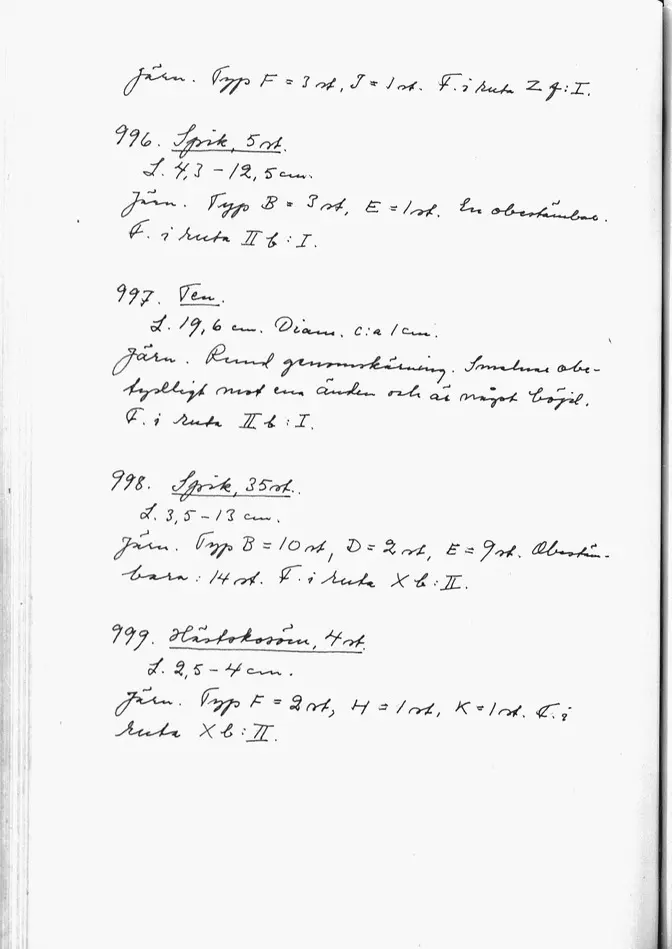 Järn. Typ F = 3 st, J = 1 st. F. i ruta Z f : I.
996. Spik, 5 st.
L. 4,3 – 12,5 cm.
Järn. Typ B = 3 st, E = 1 st. En obestämbar.
F. i ruta II b : I.
997. Ten.
L. 19,6 cm. Diam. c:a 1 cm.
Järn. Rund genomskärning. Smalnar obe-
tydligt mot ena änden och är något böjd.
F. i ruta II b : I.
998. Spik, 35 st.
L. 3,5 – 13 cm.
Järn. Typ B = 10 st, D = 2 st, E = 9 st. Obestäm-
bara : 14 st. F. i ruta X b : II.
999. Hästskosöm, 4 st.
L. 2,5 – 4 cm.
Järn. Typ F = 2 st, H = 1 st, K = 1 st. F. i
ruta X b : II.